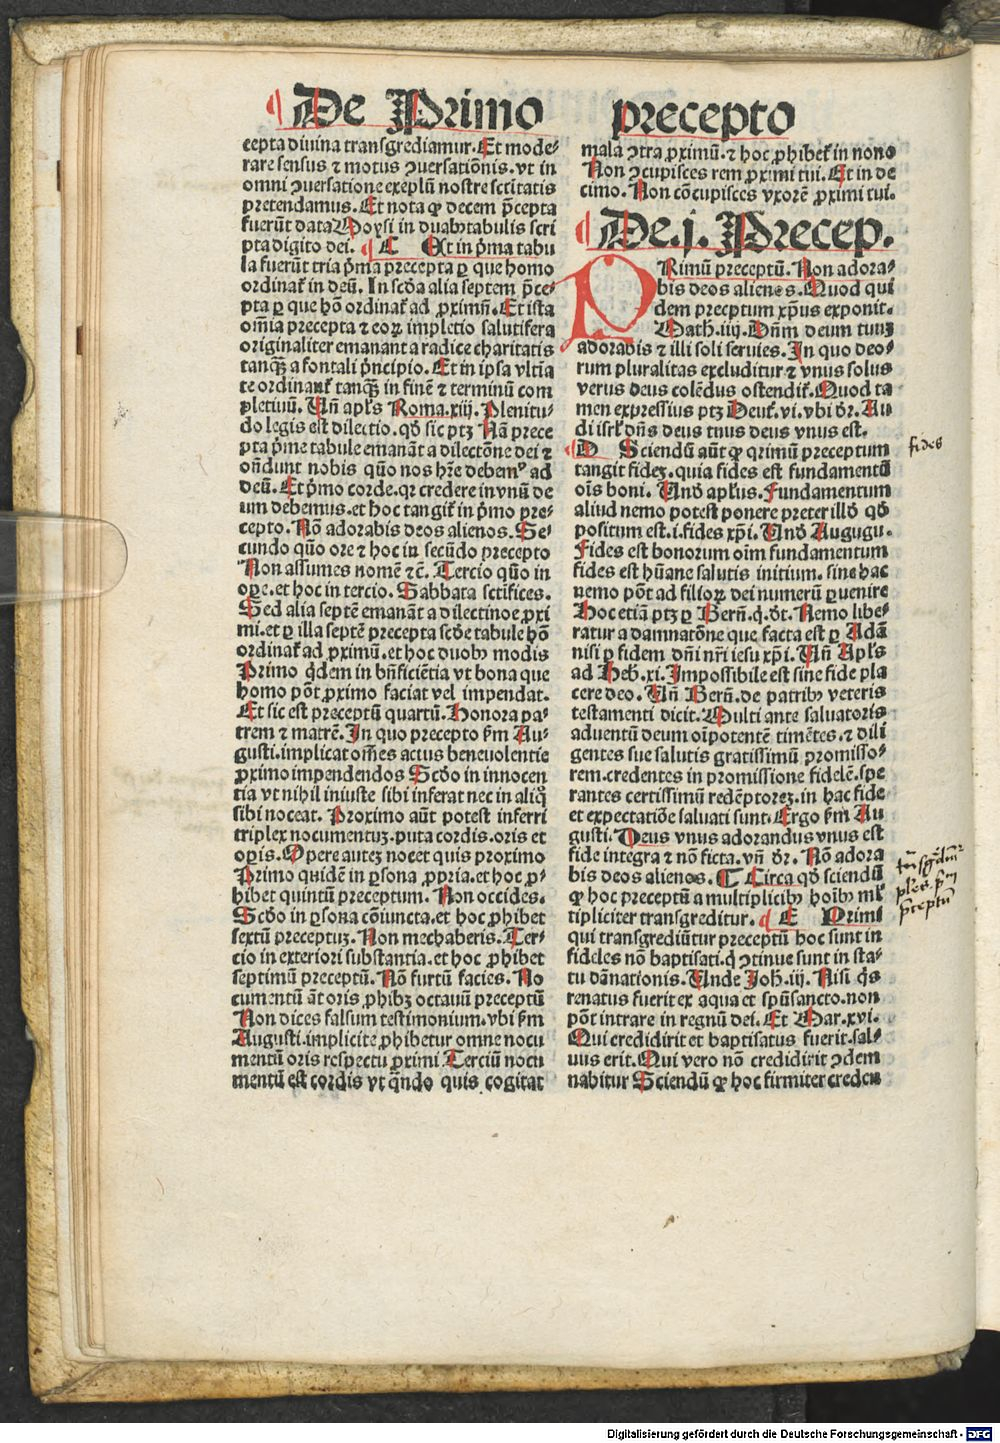 ¶ De Primo precepto
cepta diuina transgrediamur. Et mode⸗
rare sensus ⁊ motus ꝯuersatiõnis. vt in
omni ꝯuersatione exẽplũ nostre sctitatis
pretendamus. Et nota ꝙ decem p̃cepta
fuerũt data Moysi in duabꝰ tabulis scri
pta digito dei. ¶ C Et in p̃ma tabu
la fuerũt tria p̃ma precepta ꝑ que homo
ordinat̃ in deũ. In scd̃a alia septem p̃ce⸗
pta ꝑ que hõ ordinat̃ ad ꝓximũ. Et ista
oĩa precepta ⁊ eoꝝ impletio salutifera
originaliter emanant a radice charitatis
tanqꝫ a fontali p̃ncipio. Et in ipsa vltia
te ordinant̃ tanqꝫ in finẽ ⁊ terminũ com
pletiuũ. Vñ apl̃s Roma. xiij. Plenitu⸗
do legis est dilectio. qd̃ sic ptꝫ Nã prece
pta p̃me tabule emanãt a dilectõne dei ⁊
oñdunt nobis quõ nos hr̃e debemꝰ ad
deũ. Et p̃mo corde. qꝛ credere in vnũ de
um debemus. et hoc tangit̃ in p̃mo pre⸗
cepto. Nõ adorabis deos alienos. Se⸗
cundo quõ ore ⁊ hoc in secũdo precepto
Non assumes nomẽ ⁊c̃. Tercio quõ in
oꝑe. et hoc in tercio. Sabbata sctifices.
Sed alia septẽ emanãt a dilectinoe ꝓxi
mi. et ꝑ illa septẽ precepta scd̃e tabule hõ
ordinat̃ ad ꝓximũ. et hoc duobꝰ modis
Primo q̃dem in bñficiẽtia vt bona que
homo põt ꝓximo faciat vel impendat.
Et sic est preceptũ quartũ. Honora pa⸗
trem ⁊ matrẽ. In quo precepto ẜm Au⸗
gusti. implicat̃ om̃es actus beneuolentie
ꝓximo impendendos Scd̃o in innocen
tia vt nihil iniuste sibi inferat nec in aliq̃
sibi noceat. Proximo aũt potest inferri
triplex nocumentuꝫ. puta cordis. oris et
oꝑis. Opere auteꝫ nocet quis proximo
Primo quidẽ in ꝑsona ꝓpria. et hoc ꝓ⸗
hibet quintũ preceptum. Non occides.
Scd̃o in ꝑsona cõiuncta. et hoc ꝓhibet
sextũ preceptuꝫ. Non mechaberis. Ter⸗
cio in exteriori substantia. et hoc ꝓhibet
septimũ preceptũ. Nõ furtũ facies. No
cumentũ ãt oris ꝓhibꝫ octauũ preceptũ
Non dices falsum testimonium. vbi ẜm
Augusti. implicite ꝓhibetur omne nocu
mentũ oris respectu ꝓximi Terciũ nocu
mentũ est cordis vt qñdo quis cogitat
mala ꝯtra ꝓximũ. ⁊ hoc ꝓhibet̃ in nono
Non ꝯcupisces rem ꝓximi tui. Et in de
cimo. Non cõcupisces vxorẽ ꝓximi tui.
¶ De. j. Precep.
PRimũ preceptũ. Non adora⸗
bis deos alienos. Quod qui
dem precptum xp̃us exponit.
Math. iiij. Dñm deum tuuꝫ
adorabis ⁊ illi soli seruies. In quo deo⸗
rum pluralitas excluditur ⁊ vnus solus
verus deus colẽdus ostendit̃. Quod ta
men expressius ptꝫ Deut̃. vi. vbi dr̃. Au
di isrl̃ dñs deus tuus deus vnus est.
¶ D Sciendũ aũt ꝙ qrimũ preceptum
tangit fideꝫ. quia fides est fundamentũ
oĩs boni. Vnd̃ apl̃us. Fundamentum
aliud nemo potest ponere preter illd̃ qd̃
positum est. i. fides xp̃i. Vnd̃ Augugu.
Fides est bonorum oĩm fundamentum
fides est hũane salutis initium. sine hac
nemo põt ad filioꝝ dei numerũ ꝑuenire
Hoc etiã ptꝫ ꝑ Berñ. q. dr̃. Nemo libe⸗
ratur a damnatõne que facta est ꝑ Adã
nisi ꝑ fidem dñi nr̃i iesu xp̃i. Vñ Apl̃s
ad Heb̃. xi. Impossibile est sine fide pla
cere deo. Vñ Berñ. de patribꝰ veteris
testamenti dicit. Multi ante saluatoris
aduentũ deum oĩpotentẽ timẽtes. ⁊ dili
gentes sue salutis gratissimũ promisso⸗
rem. credentes in promissione fidelẽ. spe
rantes certissimũ redẽptoreꝫ. in hac fide
et expectatiõe saluati sunt. Ergo ẜm Au
gusti. Deus vnus adorandus vnus est
fide integra ⁊ nõ ficta. vñ dr̃. Nõ adora
bis deos alienos. ¶ Circa qd̃ sciendũ
ꝙ hoc preceptũ a multiplicibꝰ hoĩbꝰ ml̃
tipliciter transgreditur. ¶ E Primi
qui transgrediũtur preceptũ hoc sunt in
fideles nõ baptisati. q̃ ꝯtinue sunt in sta⸗
tu dãnationis. Vnde Joh̃. iij. Nisi q̃s
renatus fuerit ex aqua et spũsancto. non
põt intrare in regnũ dei. Et Mar. xvi.
Qui credidirit et baptisatus fuerit. sal⸗
uus erit. Qui vero nõ credidirit ꝯdem
nabitur Sciendũ ꝙ hoc firmiter credeu
fides
p̃ceptũ
Digitalisierung gefördert durch die Deutsche Forschungsgemeinschaft - DFG